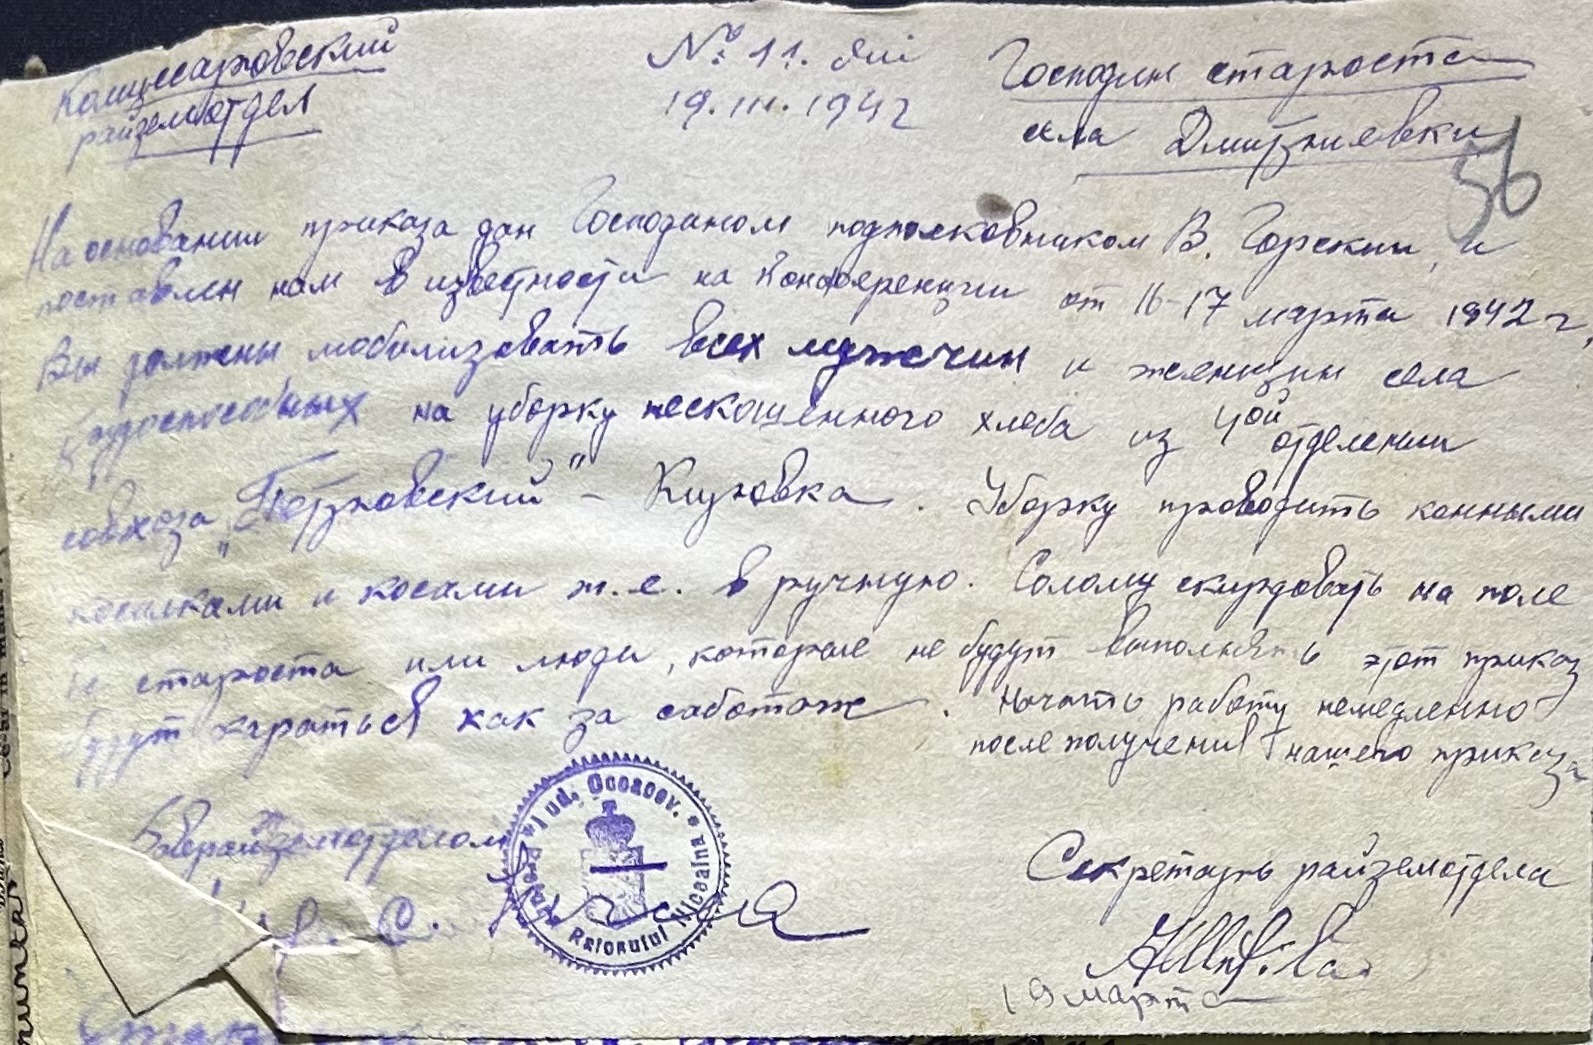 Комиссаровский
райземотдел
№ 11. дии
19.III.1942
Господин староста
села Дмитриевки
56
На основании приказа дан Господином подполковником В. Горским, и
поставлен нам в известности на Конференции от 16-17 марта 1942 г,
Вы должны мобилизовать всех мужчин и женщин села
трудоспособных на уборку нескошенного хлеба из 4ой отделении
совхоза „Петровский" – Кировка. Уборку проводить конными
косилками и косами т.е. в ручную. Солому скирдовать на поле
староста или люди, которые не будут выполнять этот приказ
будут караться как за саботаж. Начать работу немедленно
после получения нашего приказа
райземотделом
С.
Jud. Oceacov.
Raionului
Секретарь райземотдела
19 марта